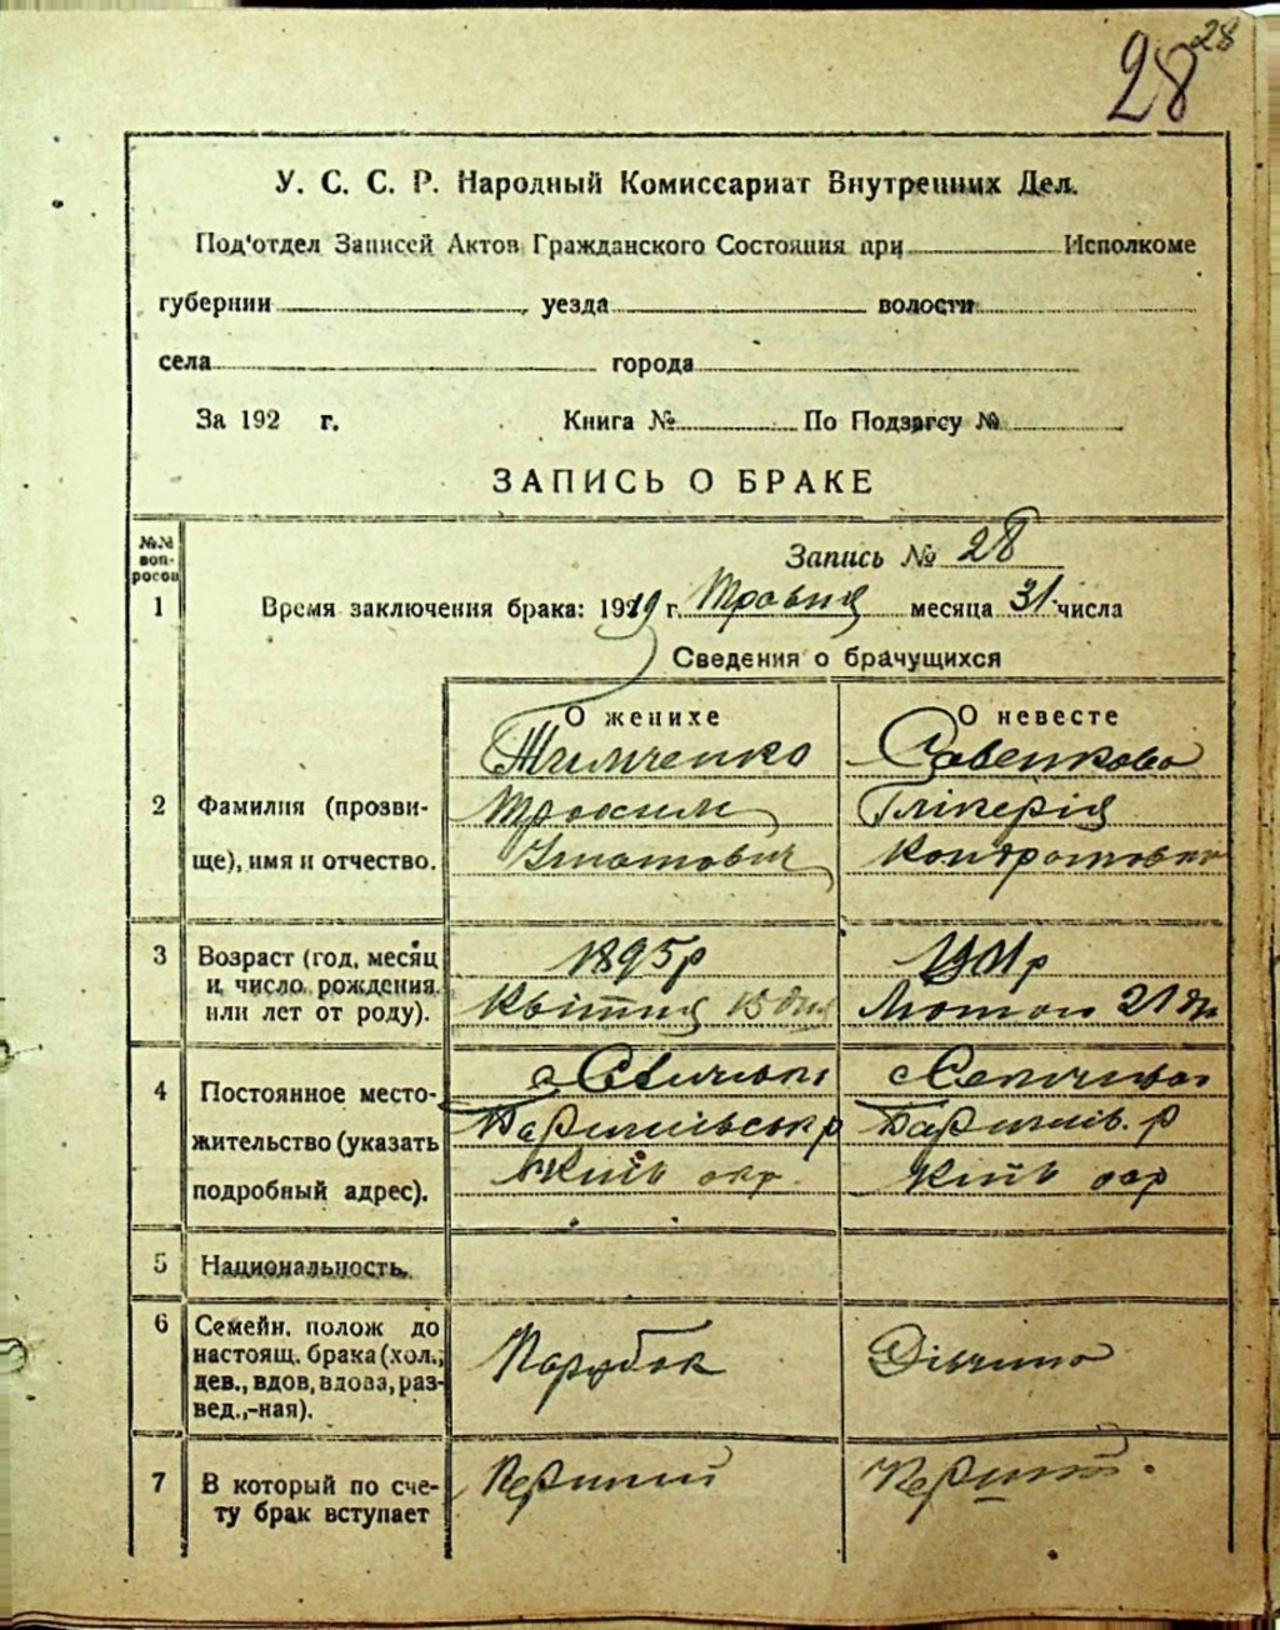 28
28
У. С. С. Р. Народный Комиссариат Внутренних Дел.
Под'отдел Записей Актов Гражданского Состояния при Исполкоме
губернии уезда волости
села города
За 192 г. Книга № По Подзагсу №
ЗАПИСЬ О БРАКЕ
№№ воп-росов
Запись № 28
1 Время заключения брака: 1919 г. Травня месяца 31 числа
Сведения о брачущихся
О женихе О невесте
Тимченко Савенкова
2 Фамилия (прозви- Трохим Гликерія
ще), имя и отчество. Игнатович Кондратовна
3 Возраст (год, месяц 1895 р 1901 р
и число рождения Квітня 15 дня Лютого 21 дн
или лет от роду).
4 Постоянное место- с с
жительство (указать Баришівськ р Баришів. р
подробный адрес). Київ окр. Київ окр
5 Национальность.
6 Семейн. полож до
настоящ. брака (хол., Парубок Дівчина
дев., вдов, вдова, раз-
вед.,-ная).
7 В который по сче- Перший Перший
ту брак вступает